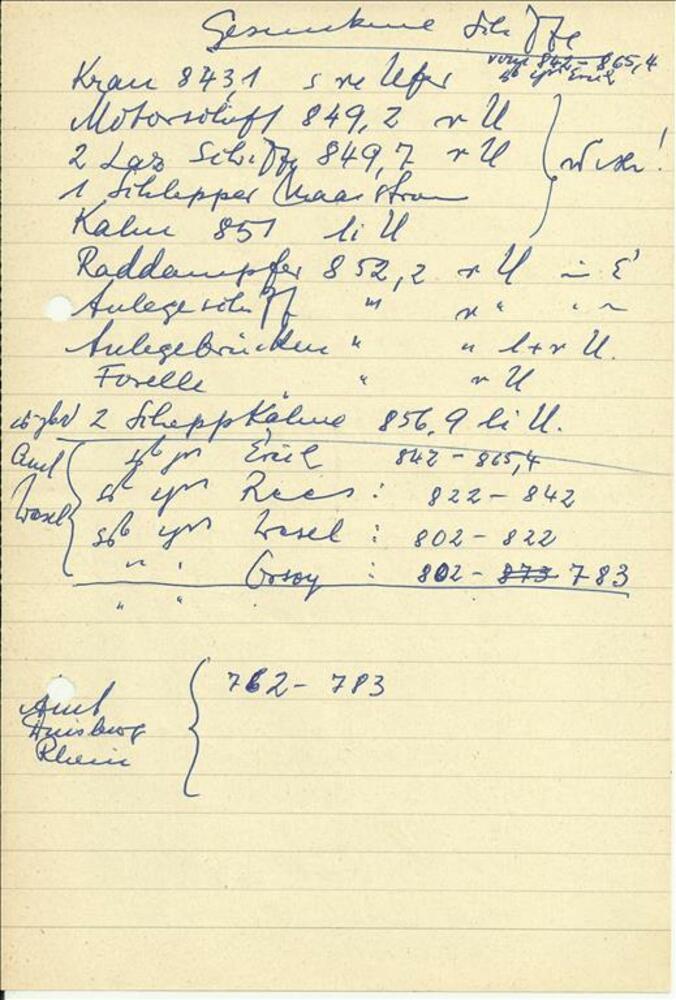 Gesunkene Schiffe
von 842 - 865,4
Kran 843,1 re Ufer
Motorschiff 849,2 r U
2 Laz Schiffe 849,7 r U
1 Schlepper Maasstrom
Kahn 851 li U
Raddampfer 852,2 r U
Anlegeschiff " r "
Anlegebrücken " " l+r U.
Forelle " r U
2 SchleppKähne 856,9 li U.
Amt
Wesel
842 - 865,4
Rees : 822 - 842
Wesel : 802 - 822
" " : 802 - 873 783
" "
762 - 783
Amt
Duisburg
Rhein